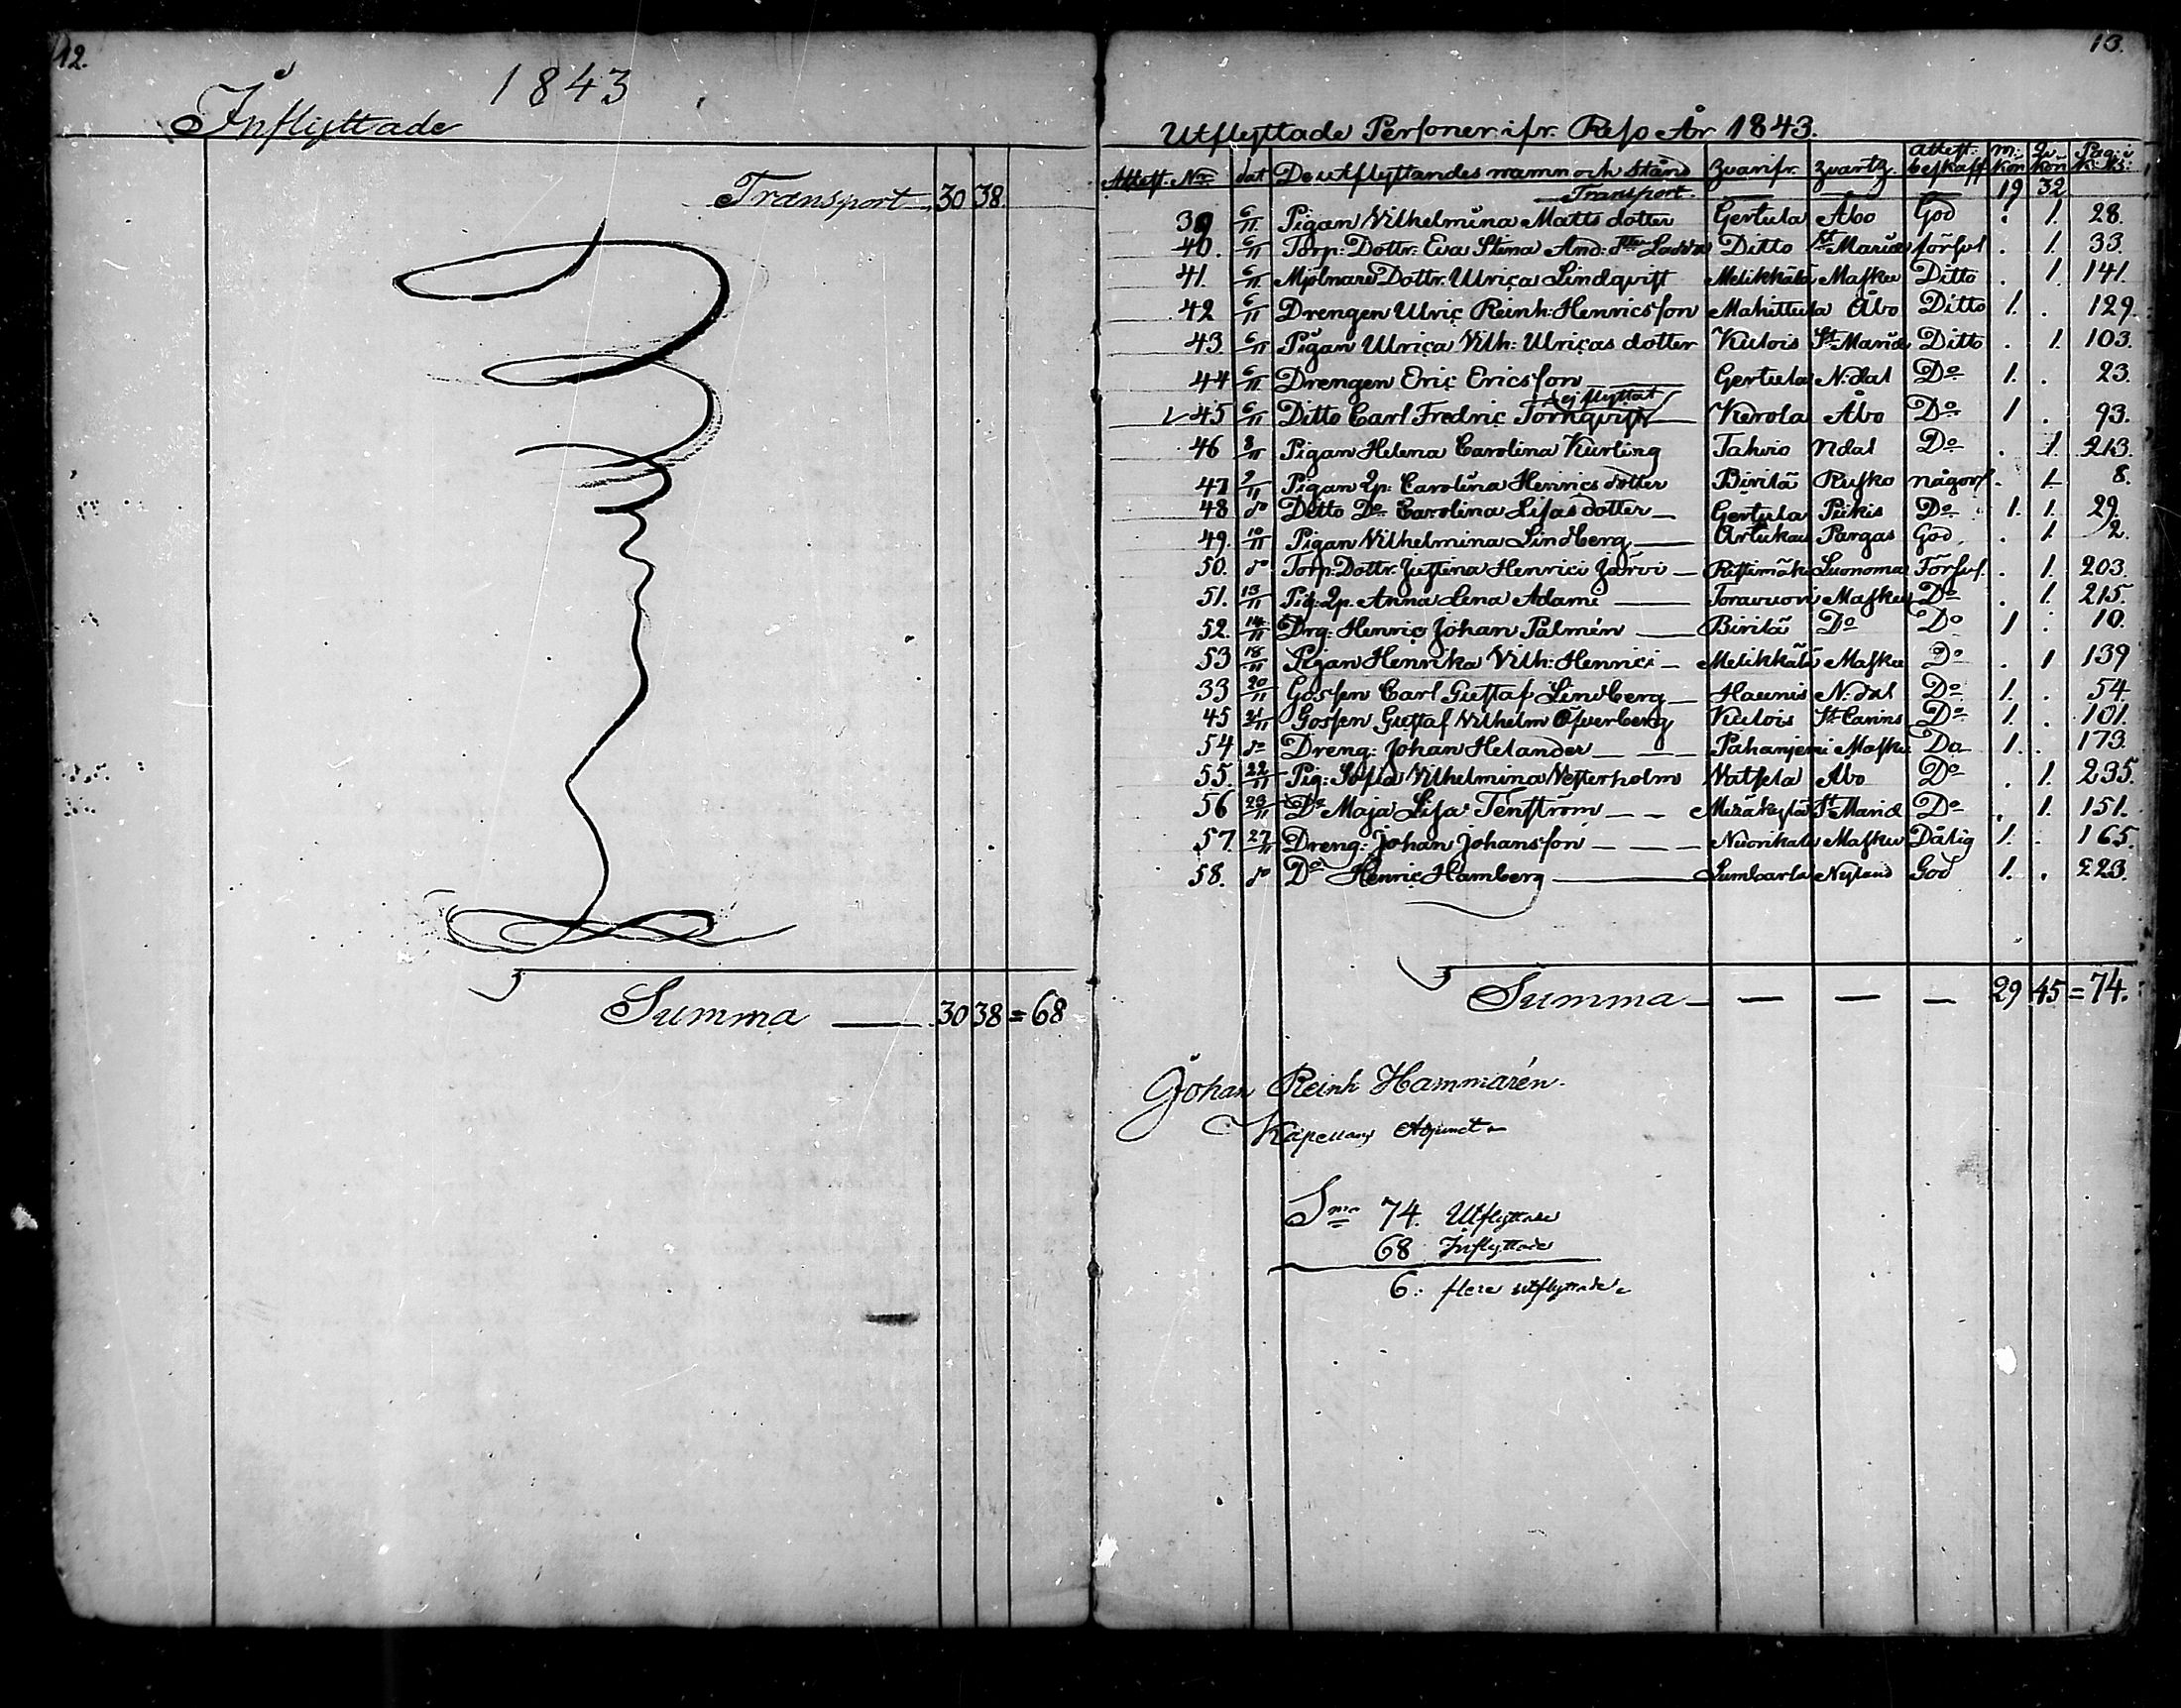 12.
1843
Inflyttade
Transport 30 38.
Summa 30 38 = 68
13.
Utflyttade Personer ifr. Reso År 1843.
Attest. No dat De utflyttandes namn och stånd hvarifr. hvartz. attest: beskaff m: kön q. kön Pag: i
Transport. 19 32
39 6/11 Pigan Vilhelmina Matts dotter Gertula Åbo God . 1. 28.
40. 6/11 Torp: Dottr. Eva Stina And: Ditto St Mariæ försvl . 1. 33.
41. 6/11 Mjölnare Dottr. Ulrica Lindqvist Melikkälä Masku Ditto . 1. 141.
42 6/11 Drengen Ulric Reinh: Henricsson Mahittula Åbo Ditto 1. . 129.
43. 6/11 Pigan Ulrica Vilh: Ulricas dotter Kulois St Mariæ Ditto . 1. 103.
44 6/11 Drengen Eric Ericsson Gertula N:dal Do 1. . 23.
ej flyttat
45 6/11 Ditto Carl Fredric Törnqvist Kerola Åbo Do 1 . 93.
46 8/11 Pigan Helena Carolina Kurling Tahvio Ndal Do . 1. 213.
47 9/11 Pigan Qp: Carolina Henrics dotter Birilä Rusko någorl. . 1. 8.
48 do Ditto Do Carolina Lisas dotter Gertula Piikis Do 1. 1. 29.
49. 10/11 Pigan Vilhelmina Lindberg Artukais Pargas God . 1. 2.
50. do Torp: Dottr. Justina Henrici Järvi Ristimäki Luonoma Försvl. . 1. 203.
51. 13/11 Pig: Qp. Anna Lena Adami Toravuori Masku Do . 1. 215.
52. 14/11 Drg: Henric Johan Palmén Birilä Do Do 1 . 10.
53 18/11 Pigan Henrika Vilh: Henrici Melikkälä Masku Do . 1 139
33 20/11 Gossen Carl Gustaf Lindberg Haunis N:dal Do 1. . 54
45 21/11 Gossen Gustaf Vilhelm Öfverberg Kulois St Carins Do 1. . 101.
54 do Dreng: Johan Helander Pahanjemi Masku Do 1. . 173.
55. 22/11 Pig: Sofia Vilhelmina Vesterholm Vatsela Åbo Do . 1. 235.
56 23/11 Do Maja Lisa Tenström St Mariæ Do . 1. 151.
57. 27/11 Dreng: Johan Johansson Nuorikala Masku Dålig 1. . 165.
58. do Do Henric Hamberg Lumbarla Nyland God 1. . 223.
Summa 29 45 = 74.
Johan Reinh Hammarén.
Kapellans Adjunct
Sma 74. Utflyttade
68 Inflyttade
6. flere utflyttade